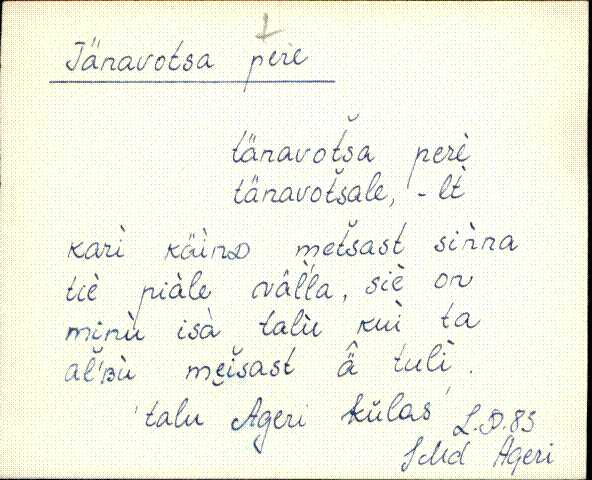 Tänavotsa pere
tänavot̆sa perè
tänavot̆sale, -lt̀
karì käìnᴅ met̆sast siǹna
tiè piàle vâl̀la, siè on
minù isà talù kuì ta
al̆ʙù met̆sast ǟ tulì.
'talu Ageri külas'
L.P. 83
JMd Ageri